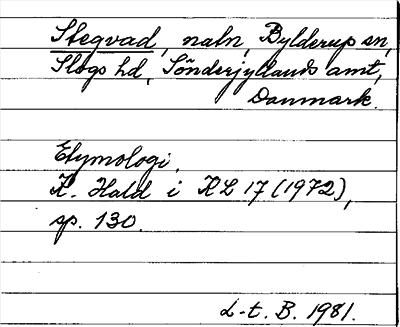 Stegvad, natn, Bylderup sn,
Slogs hd, Sönderjyllands amt,
Danmark.
Etymologi.
K. Hald i KL 17 (1972),
sp. 130.
L-t. B. 1981.